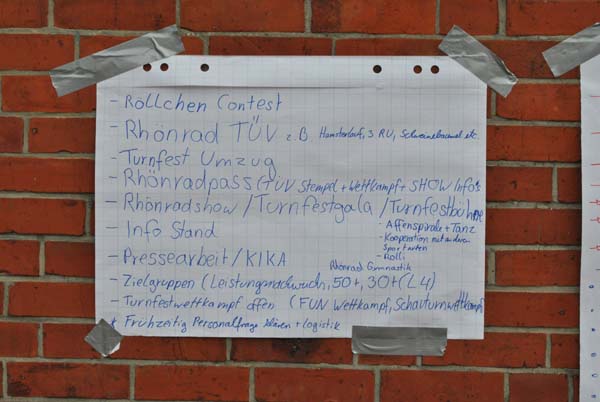 - Röllchen Contest
- Rhönrad TÜV z.B. Hamsterlauf, 3 RU, Schweinebaumel etc.
- Turnfest Umzug
- Rhönradpass (TÜV Stempel + Wettkampf + SHOW Info's
- Rhönradshow / Turnfestgala / Turnfestbühne
- Affenspirale + Tanz
- Kooperation mit anderen Sportarten
- Rolli
- Info Stand
- Pressearbeit / KIKA
Rhönrad Gymnastik
- Zielgruppen (Leistungsnachwuchs, 50+, 30+ (L4)
- Turnfestwettkampf offen (FUN Wettkampf, Schauturnwettkampf
* Frühzeitig Personalfrage klären + logistik